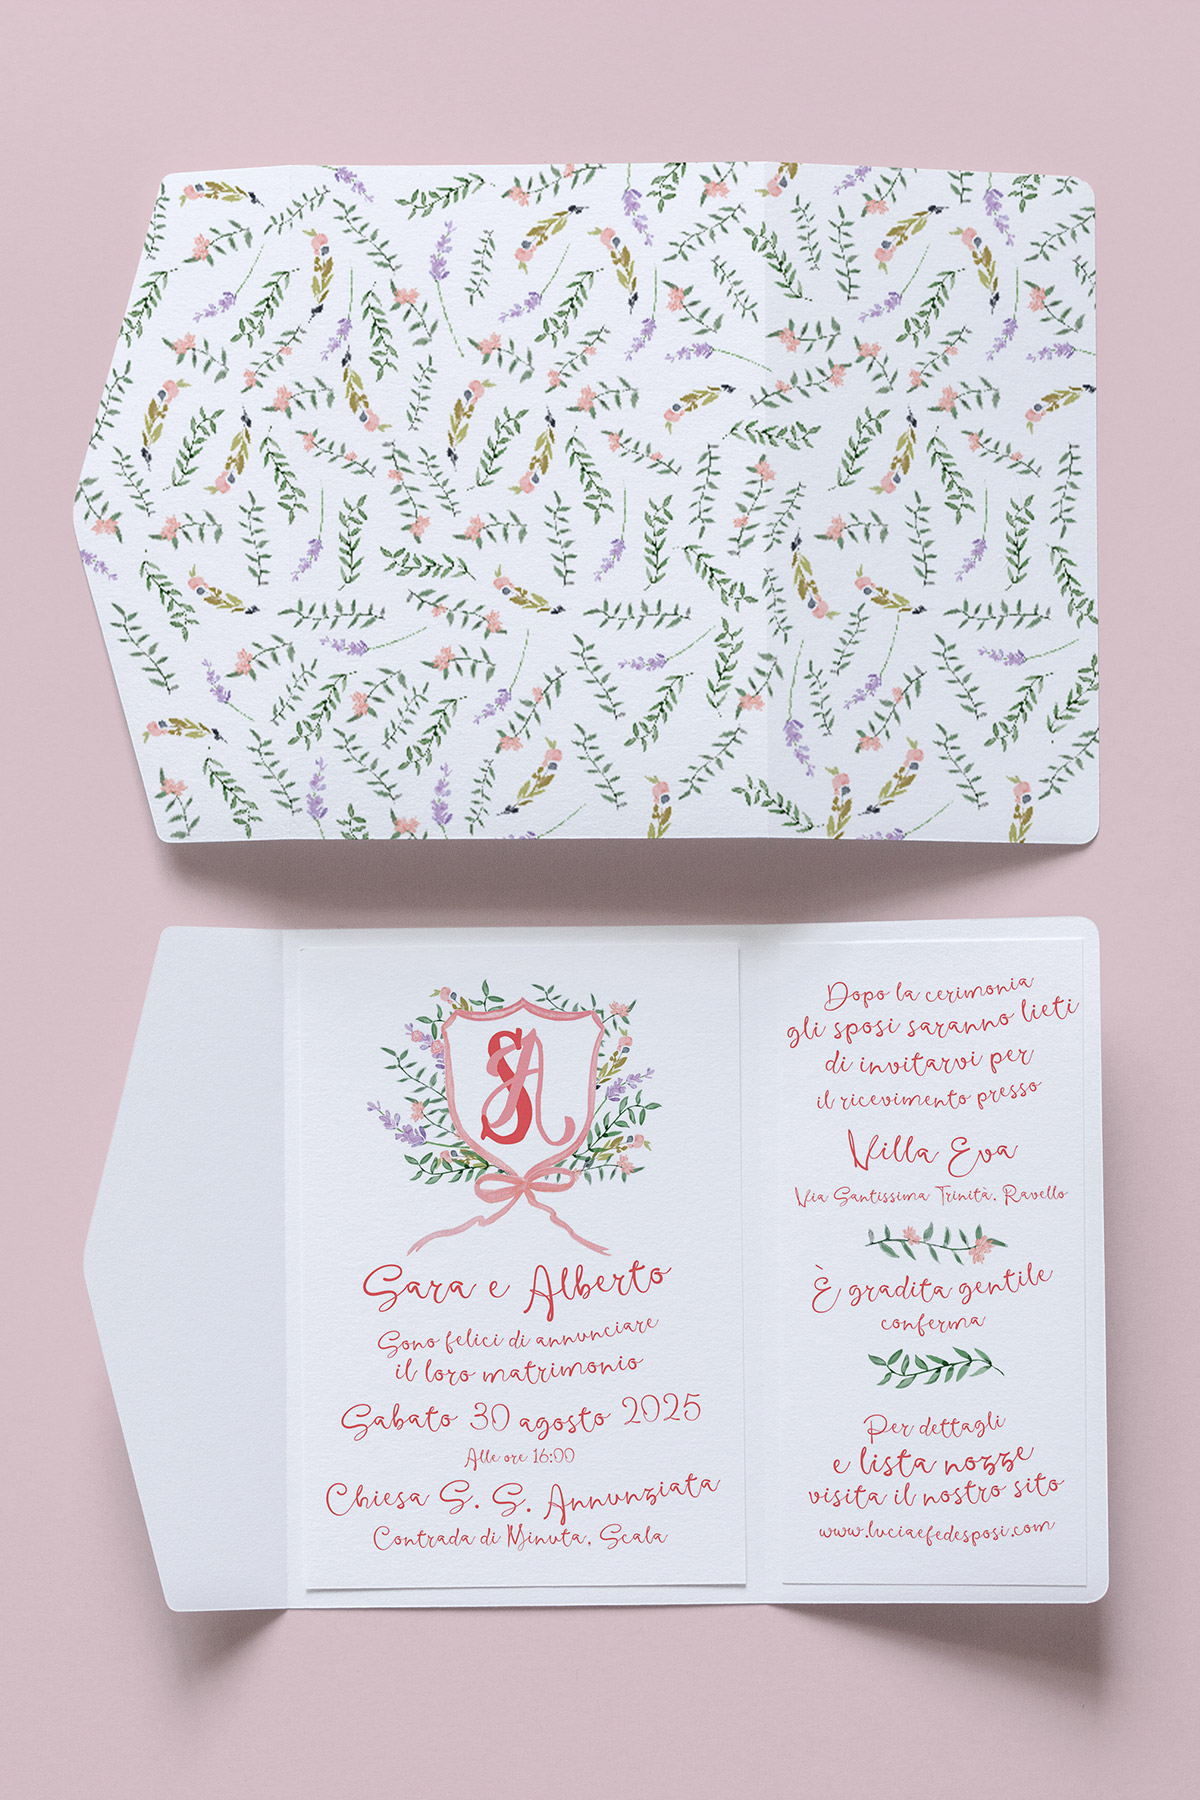 SA
Sara e Alberto
Sono felici di annunciare
il loro matrimonio
Sabato 30 agosto 2025
Alle ore 16:00
Chiesa S. S. Annunziata
Contrada di Minuta, Scala
Dopo la cerimonia
gli sposi saranno lieti
di invitarvi per
il ricevimento presso
Villa Eva
Via Santissima Trinità, Ravello
È gradita gentile
conferma
Per dettagli
e lista nozze
visita il nostro sito
www.luciaefedesposi.com